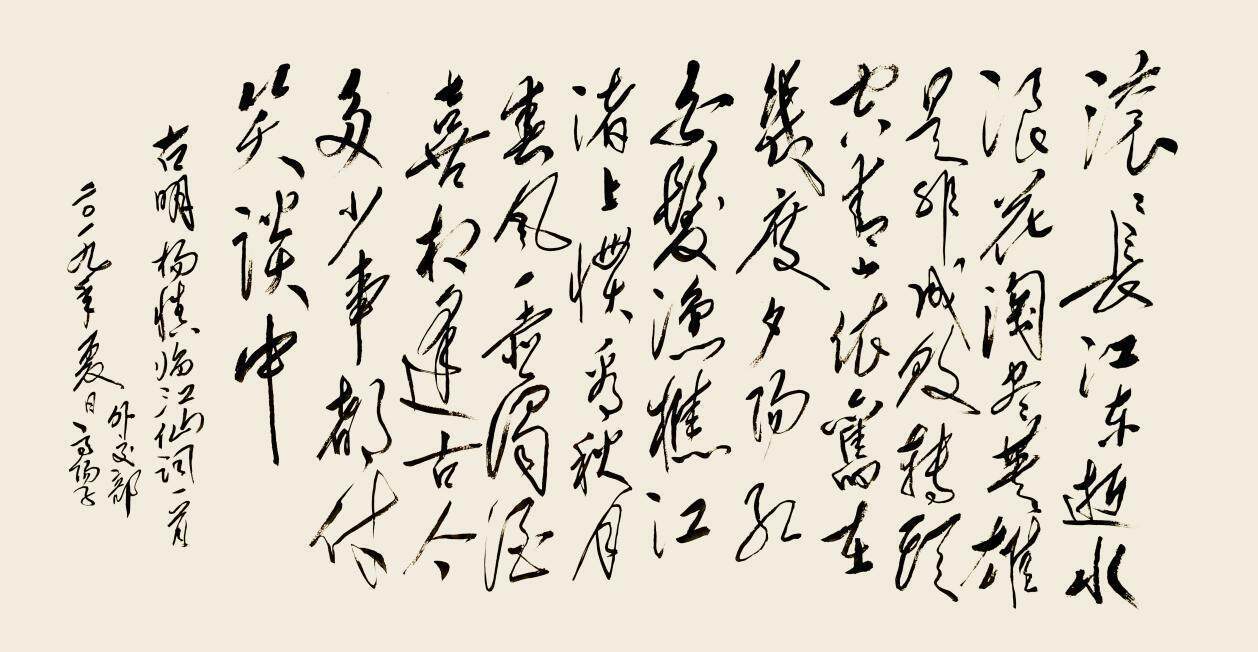 滚滚長江东逝水
浪花淘尽英雄
是非成敗轉頭
空青山依舊在
幾度夕陽红
白髮渔樵江
渚上惯看秋月
春風一壶濁酒
喜相逢古今
多少事都付
笑談中
古明杨慎临江仙词一首
外交部
二〇一九年夏日